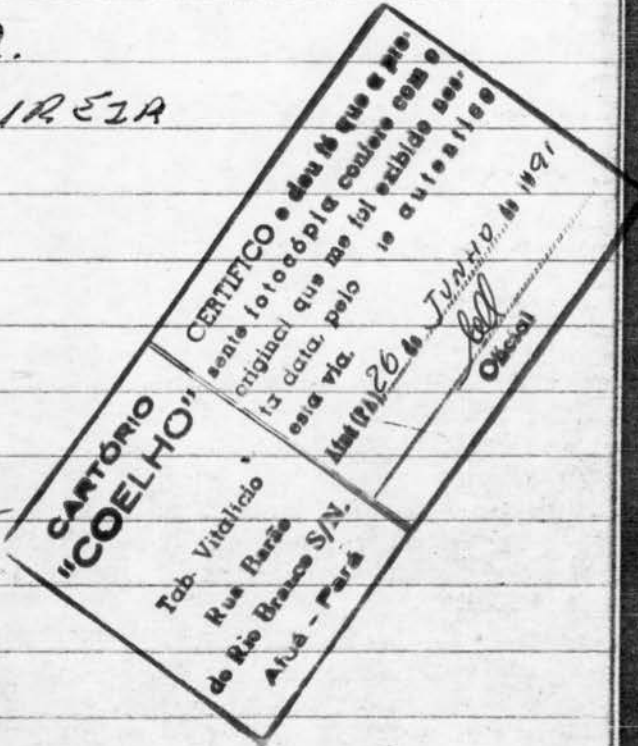 CARTÓRIO
"COELHO"
Tab. Vitalício
Rua Barão
do Rio Branco S/N.
Afuá - Pará
CERTIFICO e dou fé que a pre-
sente fotocópia confere com o
original que me foi exibido nes-
ta data, pelo se autentico
esta via.
Afuá (PA) 26 de JUNHO de 1991
Oficial